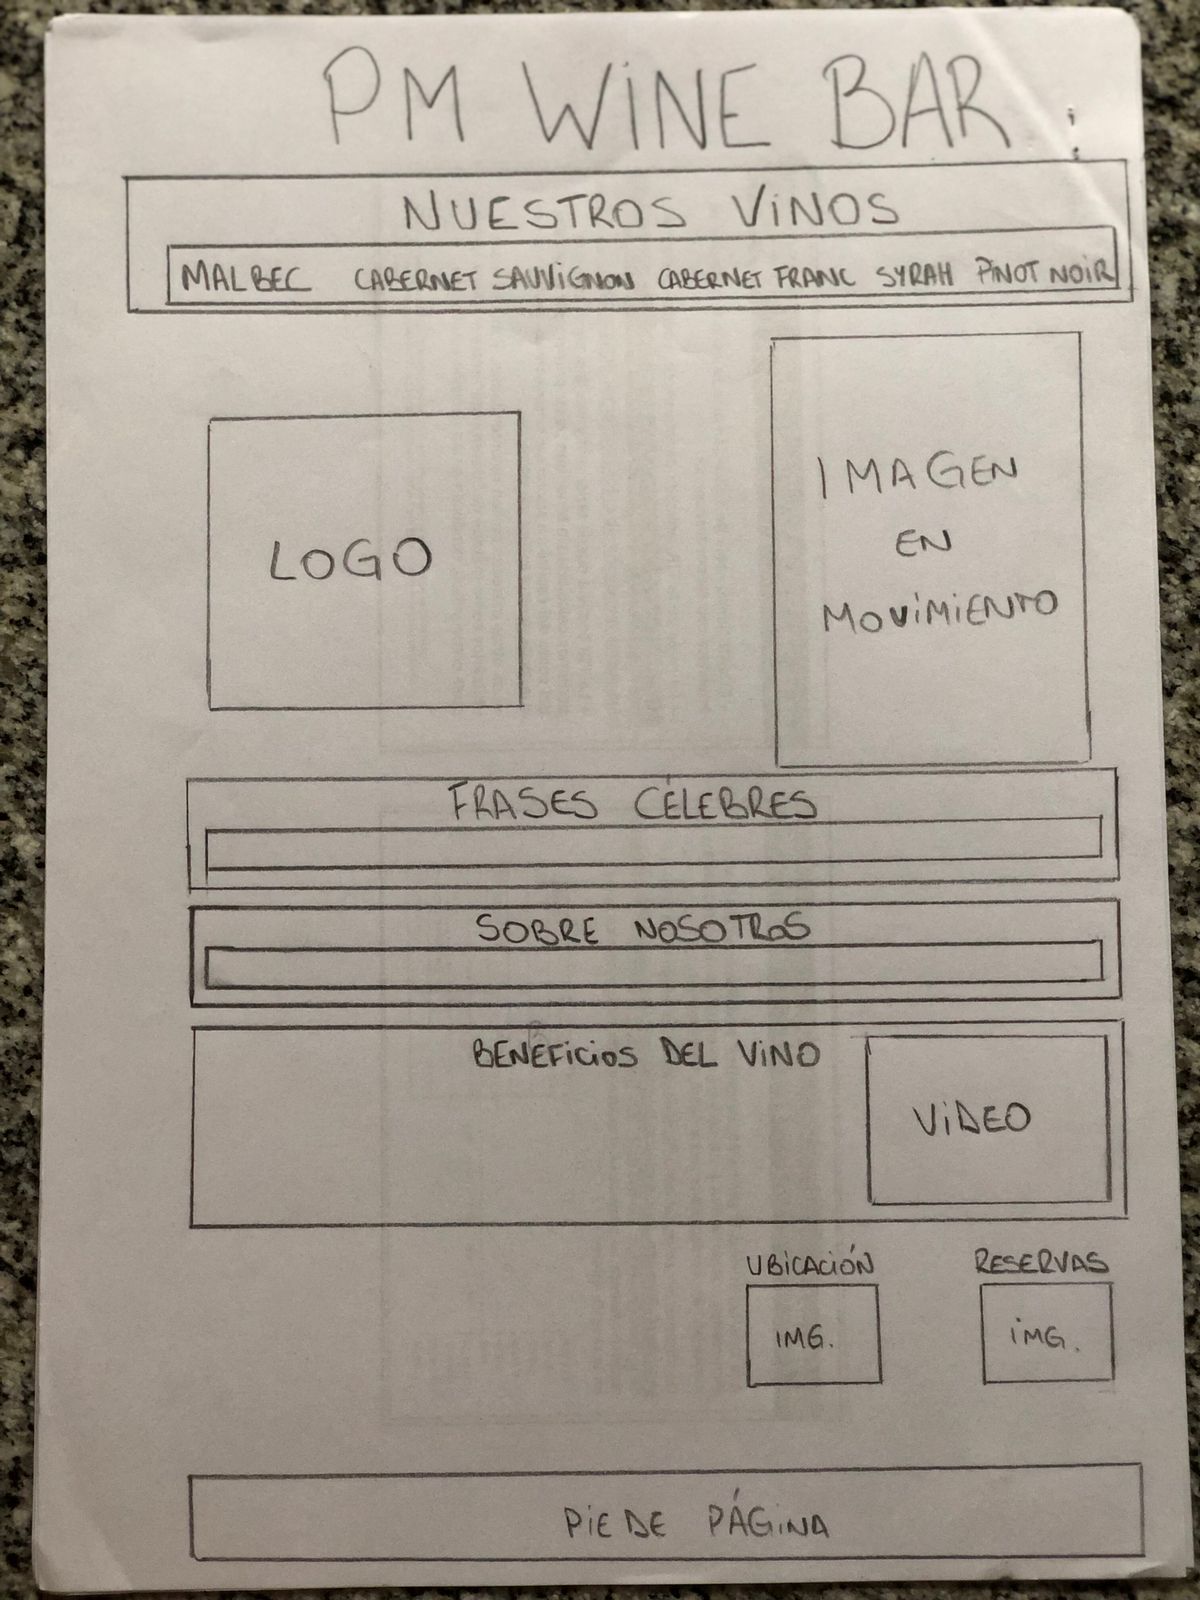 PM WINE BAR
NUESTROS VINOS
MALBEC CABERNET SAUVIGNON CABERNET FRANC SYRAH PINOT NOIR
LOGO
IMAGEN
EN
MOVIMIENTO
FRASES CÉLEBRES
SOBRE NOSOTROS
BENEFICIOS DEL VINO
VIDEO
UBICACIÓN RESERVAS
IMG. IMG.
PIE DE PÁGINA